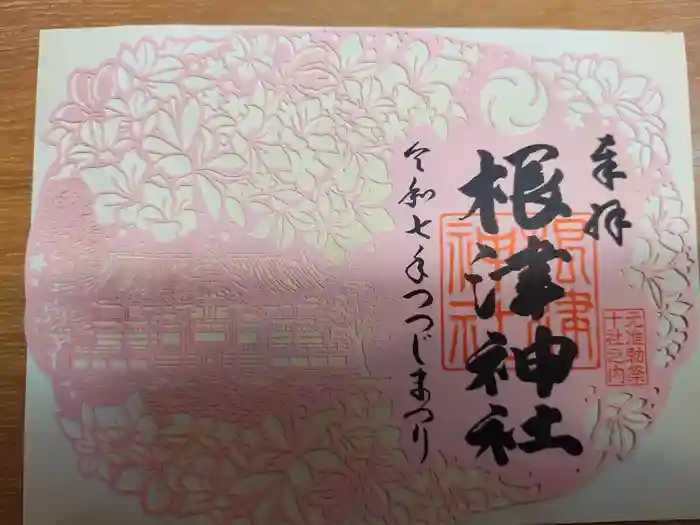 奉拝
根津神社
根津神社
元准勅祭
十社之内
令和七年つつじまつり